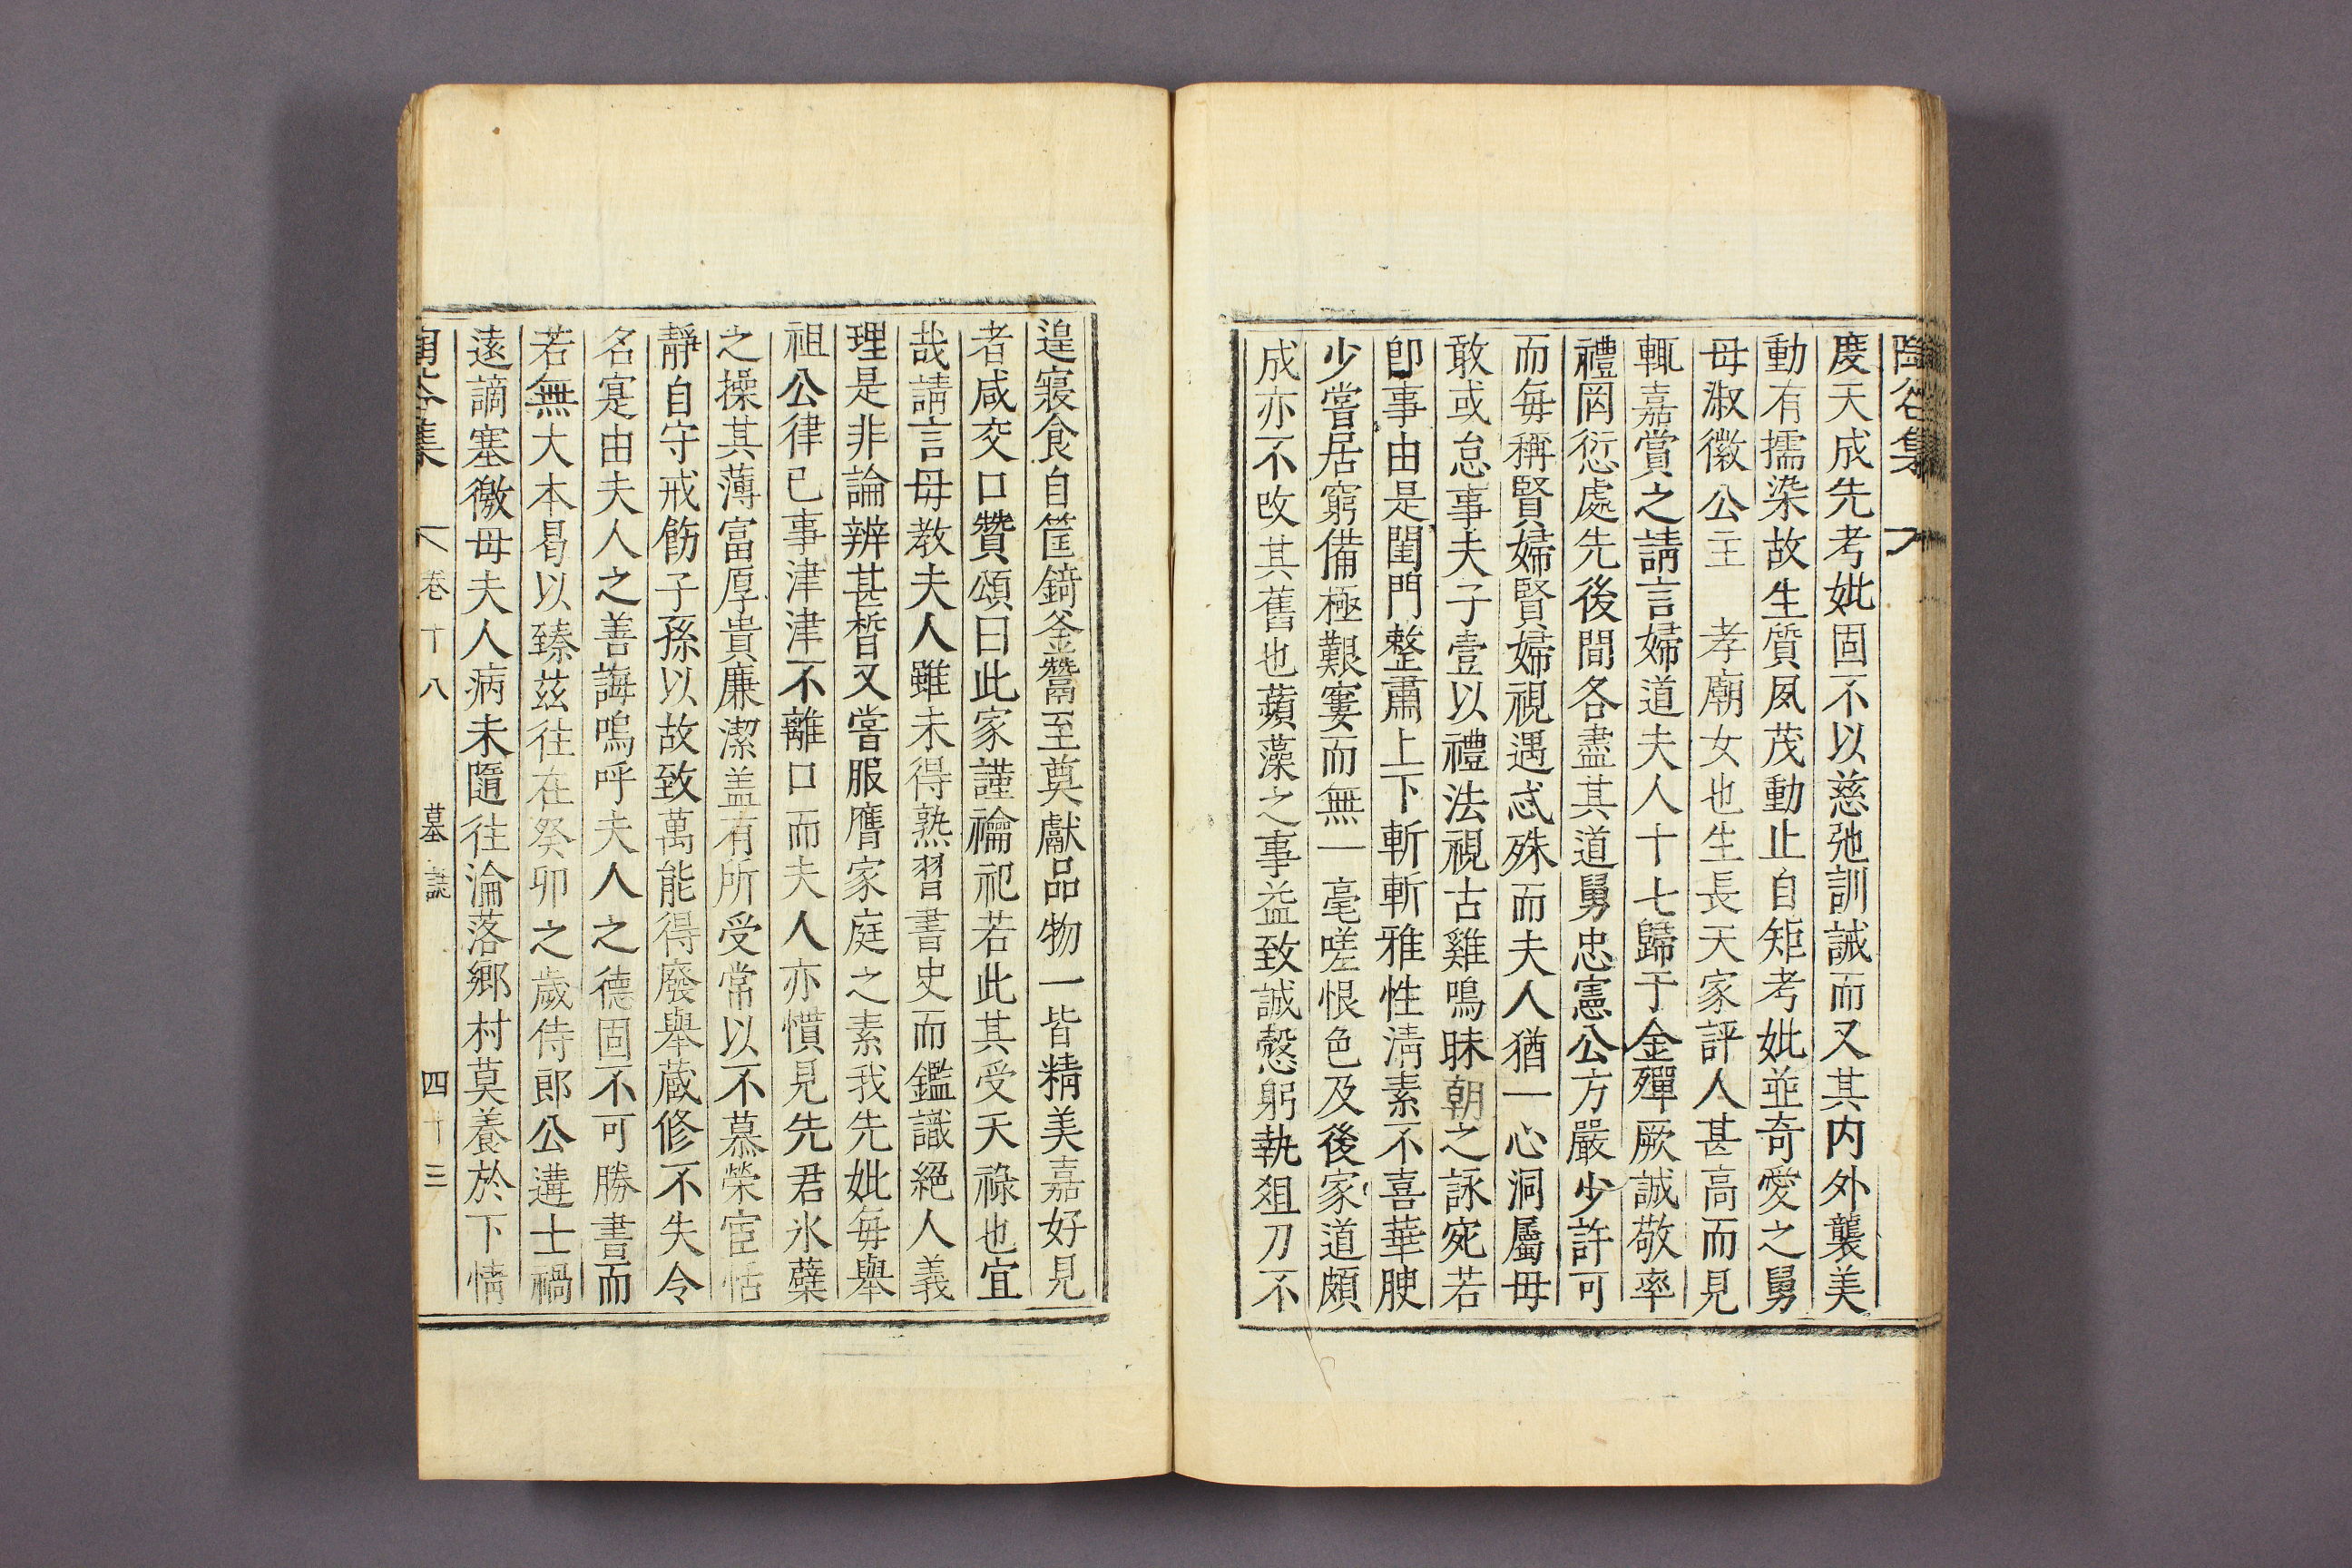 陶谷集
度天成先考妣固不以慈弛訓誡而又其内外襲美
動有擩染故生質夙茂動止自矩考妣並奇愛之舅
母淑徽公主　孝廟女也生長天家評人甚高而見
輒嘉賞之請言婦道夫人十七歸于金殫厥誠敬率
禮罔愆處先後間各盡其道舅忠憲公方嚴少許可
而每稱賢婦賢婦視遇忒殊而夫人猶一心洞屬毋
敢或怠事夫子壹以禮法視古雞鳴昧朝之詠宛若
卽事由是閨門整肅上下斬斬雅性淸素不喜華腴
少嘗居窮備極艱寠而無一毫嗟恨色及後家道頗
成亦不改其舊也蘋藻之事益致誠慤躬執爼刀不
遑寢食自筐錡釜鬵至奠獻品物一皆精美嘉好見
者咸交口贊頌曰此家謹禴祀若此其受天祿也宜
哉請言毋教夫人雖未得熟習書史而鑑識絕人義
理是非論辨甚晳又嘗服膺家庭之素我先妣每舉
祖公律己事津津不離口而夫人亦慣見先君氷蘗
之操其薄富厚貴廉潔盖有所受常以不慕榮宦恬
靜自守戒飭子孫以故致萬能得廢舉蔵修不失令
名寔由夫人之善誨嗚呼夫人之德固不可勝書而
若無大本曷以臻茲徃在癸卯之歲侍郎公遘士禍
遠謫塞徼毋夫人病未隨徃淪落鄉村莫養於下情
陶谷集　卷十八　墓誌　四十三